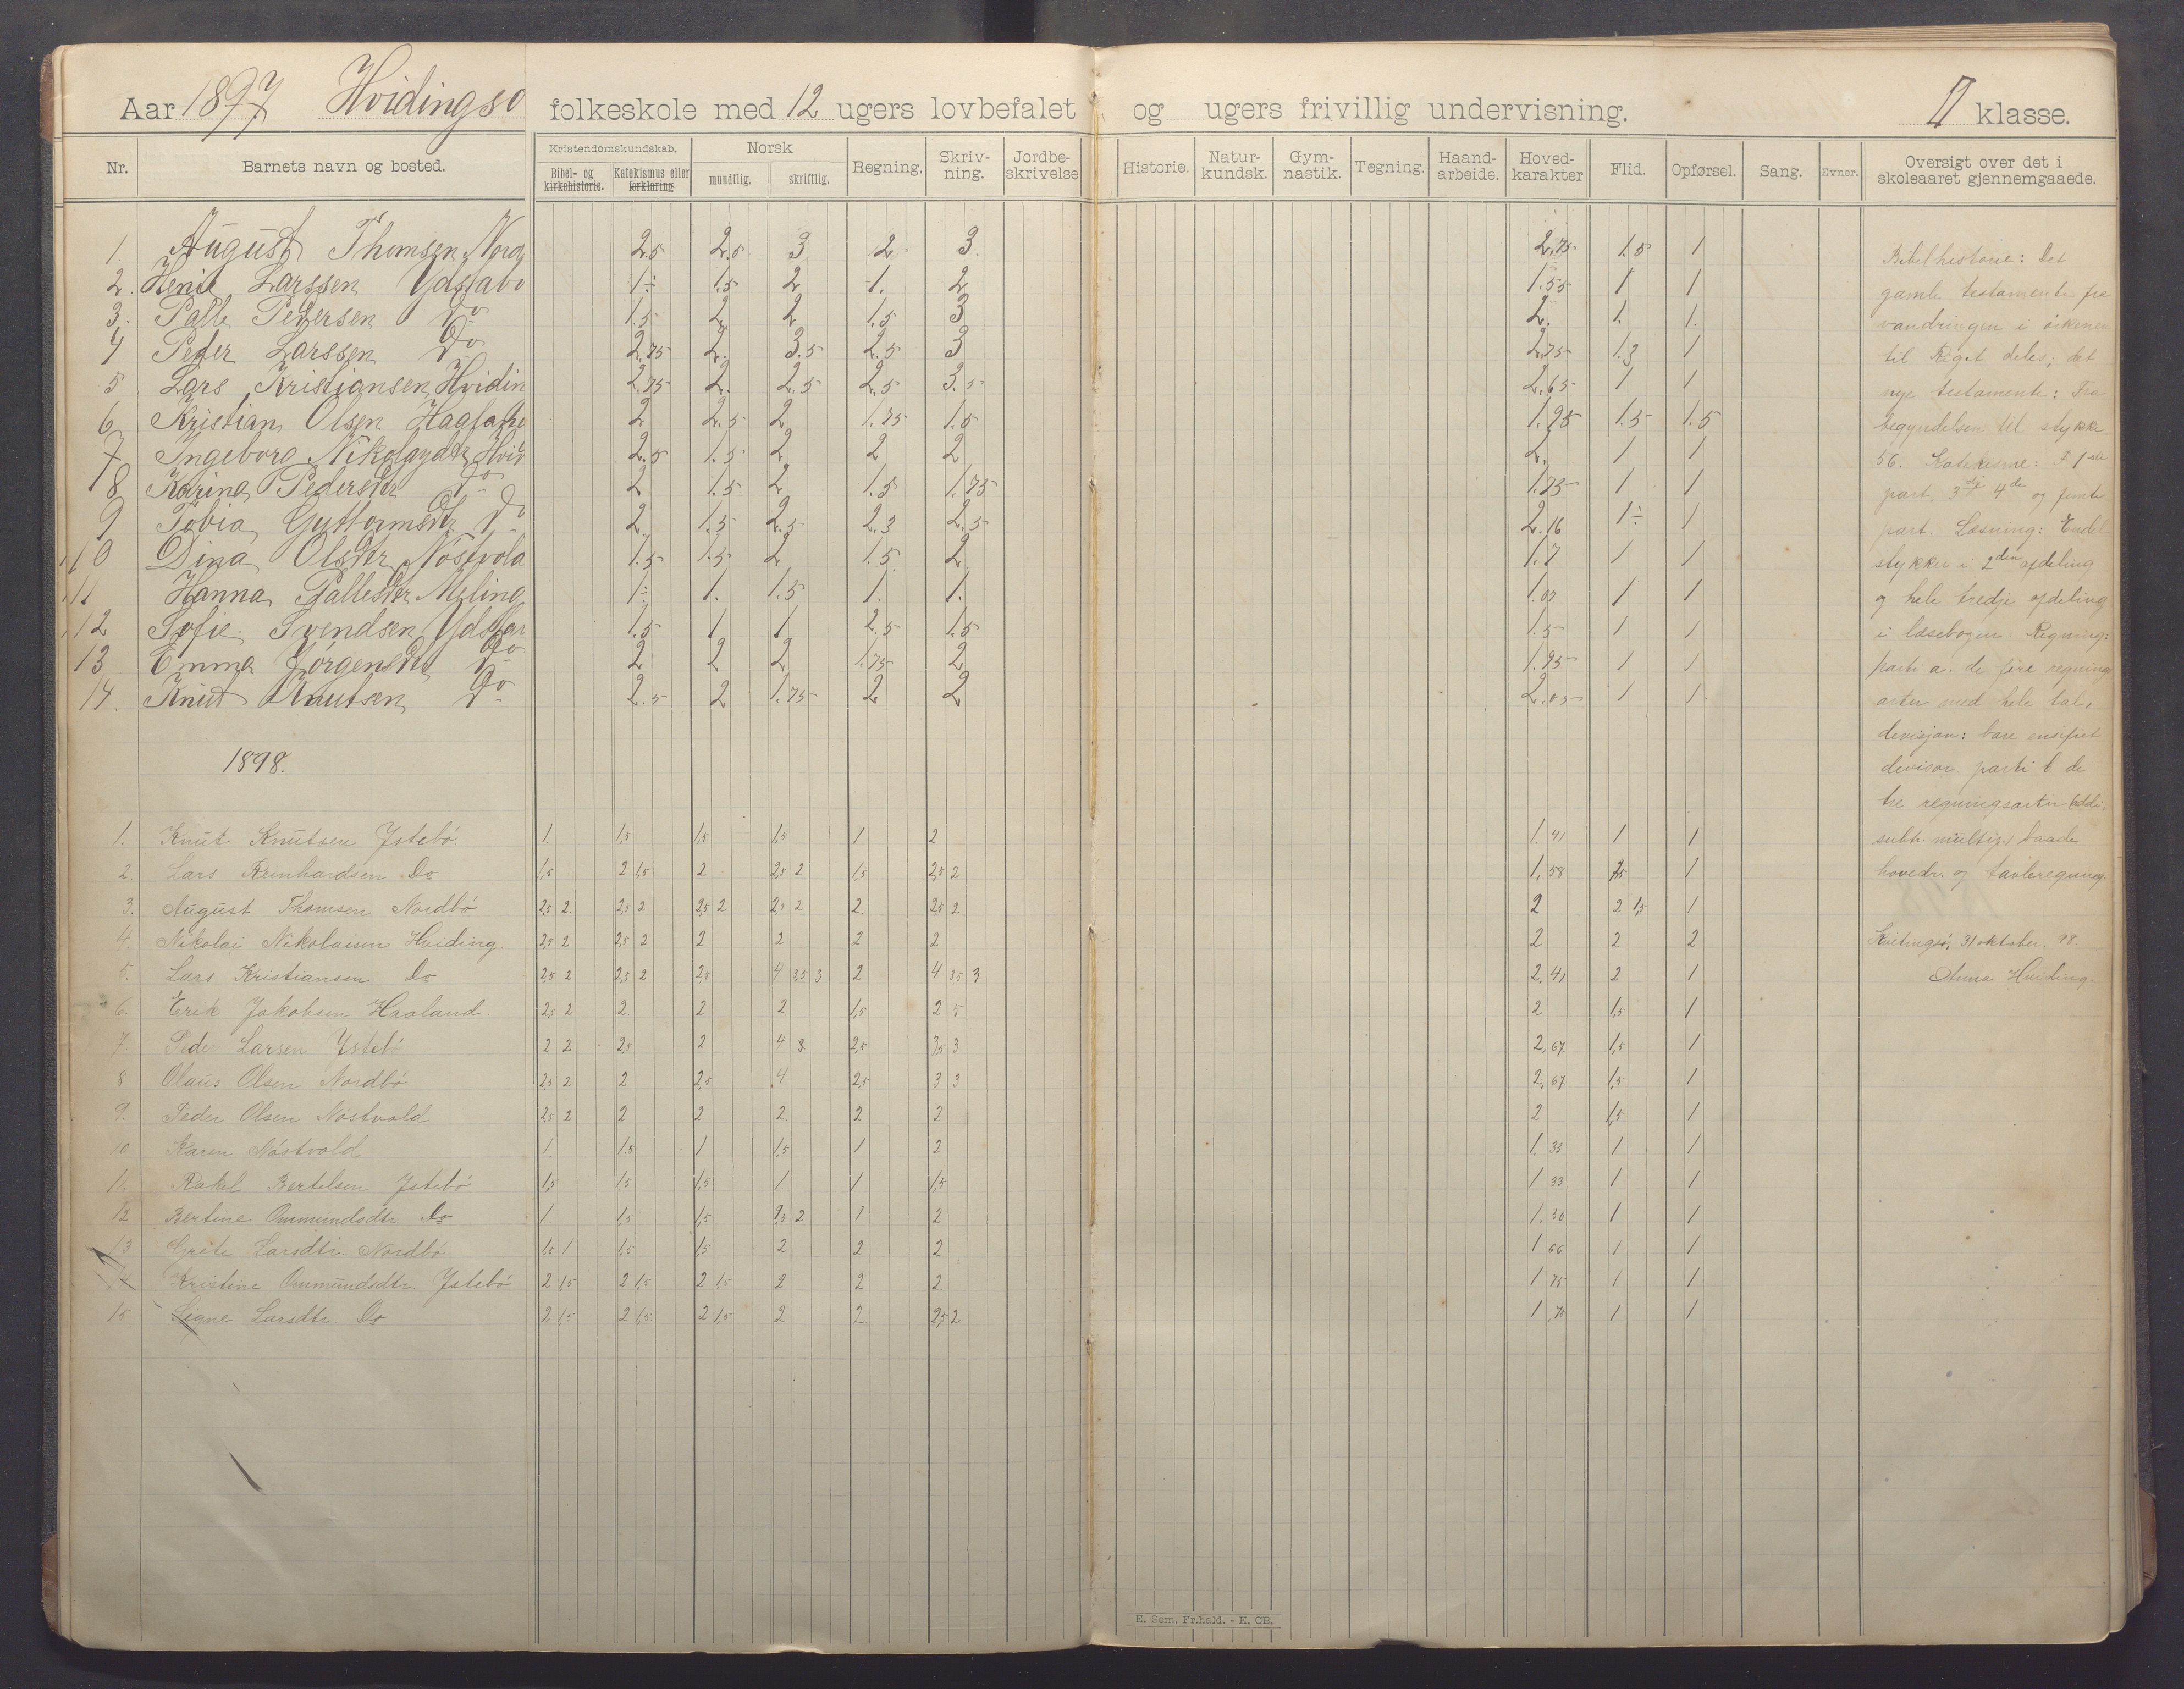 Aar 1897 Hvidingsö folkeskole med 12 ugers lovbefalet og ugers frivillig undervisning. II klasse.
Nr. Barnets navn og bosted. Kristendomskundskab. Bibel- og kirkehistorie. Katekismus eller forklaring. Norsk mundtlig. skriftlig. Regning. Skriv-ning. Jordbe-skrivelse Historie. Natur-kundsk. Gym-nastik. Tegning. Haand-arbeide. Hoved-karakter Flid. Opførsel. Sang. Evner. Oversigt over det i skoleaaret gjennemgaaede.
1. August Thomsen Nord 2.5 2.5 3 2 3. 2.75 1.5 1
2. Henie Larssen Ydstabö 1÷ 1.5 2 1. 2 1.55 1 1
3. Palle Pedersen Do 1.5 2 2 1.5 3 2. 1. 1.
4 Peder Larssen Do 2.75 2. 3.5 2.5 3 2.75 1.3 1
5 Lars Kristiansen Hvidin 2.75 2. 2.5 2.5 3.5 2.65 1 1
6 Kristian Olsen Haaland 2 2.5 2 1.75 1.5 1.95 1.5 1.5
7 Ingeborg Nikolaydtr Hvid 2.5 1.5 2 2 2 2. 1 1
8 Karina Pedersdtr Do 2 1.5 2 1.5 1.75 1.75 1 1
9 Tobia Guttormsdtr Do 2 1.5 2.5 2.3 2.5 2.16 1÷ 1
10 Dina Olsdtr Nöstvola 1.5 1.5 2 1.5 2 1.7 1 1
11 Hanna Pallesdtr Meling 1÷ 1. 1.5 1. 1. 1.07 1 1
12 Sofie Svendsen Ydsta 1.5 1 1 2.5 1.5 1.5 1 1
13 Emma Jörgensdtr Do 2 2 2 1.75 2 1.95 1 1
14. Knut Knutsen Do 2.5 2 1.75 2 2 2.05 1 1
1898.
1. Knut Knutsen Ystebö. 1. 1,5 1,5 1,5 1 2 1.41 1 1
2 Lars Reinhardsen Do 1,5 2 1,5 2 2,5 2 1,5 2,5 2 1,58 1,5 1
3. August Thomsen Nordbö 2,5 2 2,5 2 2,5 2 2,5 2 2 2,5 2 2 2 1,5 1
4. Nikolai Nikolaisen Hviding 2,5 2 2,5 2 2 2 2 2 2 2 2
5. Lars Kristiansen Do 2,5 2 2,5 2 2,5 4 3,5 3 2 4 3,5 3 2,41 2 1
6. Erik Jakobsen Haaland. 2,5 2 2 2 2 1,5 2 5 2 1,5 1
7 Peder Larsen Ystebö 2 2 2,5 2 4 3 2,5 3,5 3 2,67 1,5 1
8 Olaus Olsen Nordbö 2,5 2 2 2,5 4 2,5 3 3 2,67 1,5 1
9. Peder Olsen Nöstvold 2,5 2 2 2 2 2 2 2 1,5 1
10 Karen Nöstvold 1. 1.5 1 1,5 1 2 1.33 1 1
11. Rakel Bertelsen Ystebö 1,5 1,5 1,5 1 1 1,5 1 33 1 1
12 Bertine Ommundsdtr. Do 1 1,5 1,5 2,5 2 1 2 1,50 1 1
13 Grete Larsdtr. Nordbö 1,5 1 1,5 1,5 2 2 2 1 66 1 1
14 Kristine Ommundsdtr. Ystebö 2 1,5 2 1,5 2 1,5 2 2 2 1 75 1 1
15 Signe Larsdtr. Do 2 1,5 2 1,5 2 1,5 2 2 2,5 2 1,75 1 1
Bibelhistorie: Det
gamle testamente fra
vandringen i örkenen
til Riget deles; det
nye testamente: Fra
begyndelsen til stykke
56. Katekisme: 1ste
part. 3dje 4de og femte
part. Læsning: Endel
stykker i 2den afdeling
og hele tredje afdeling
i læsebogen. Regning:
parti a. de fire regnings
arter med hele tal,
devisjon: bare ensifret
devisor parti b de
tre regningsarter (addi.
subtr. multip.) baade
hovedr. og tavleregning.
Kvitingsö, 31 oktober. 98.
Anna Hviding.
E. Sem, Fr.hald. - E. CB.